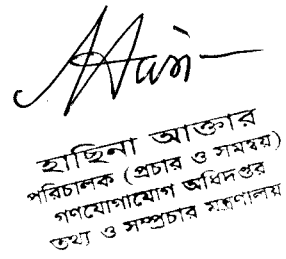 হাছিনা আক্তার
পরিচালক (প্রচার ও সমন্বয়)
গণযোগাযোগ অধিদপ্তর
তথ্য ও সম্প্রচার মন্ত্রণালয়